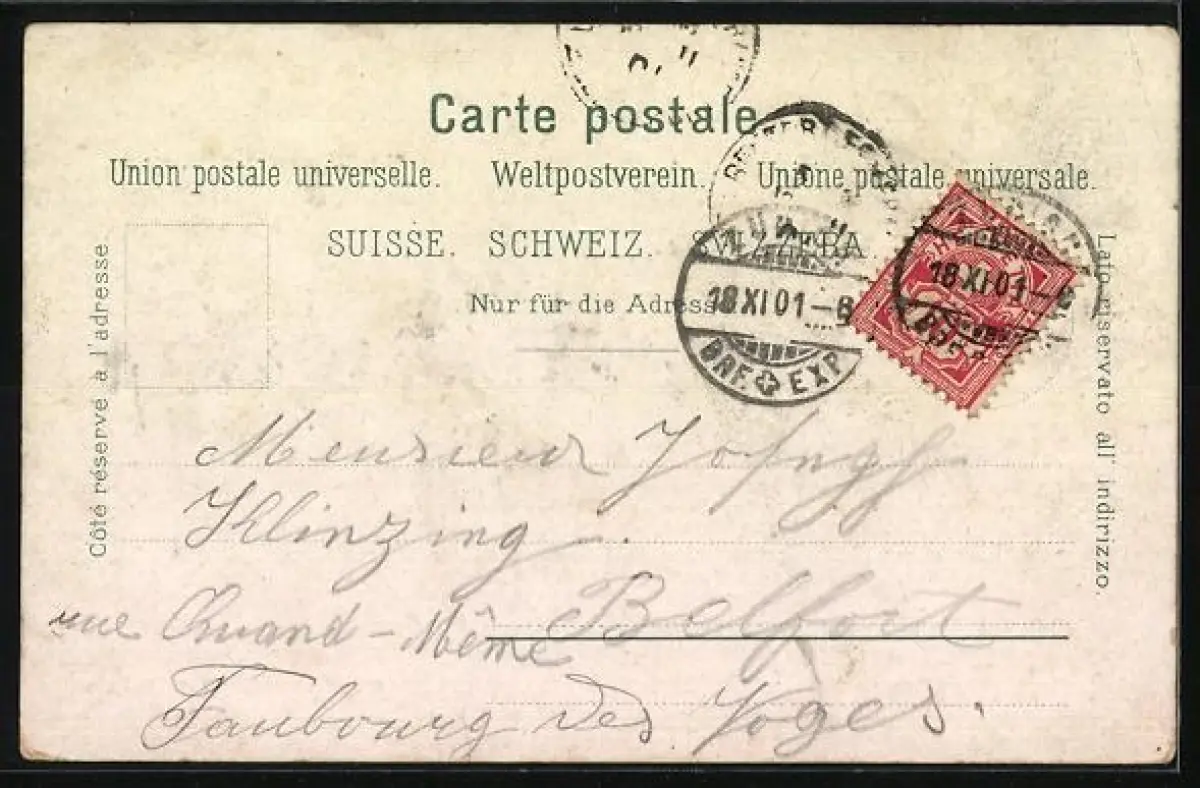 Carte postale
Union postale universelle. Weltpostverein. Unione postale universale.
SUISSE. SCHWEIZ. SVIZZERA
Nur für die Adresse
Côté réservé à l'adresse
Lato riservato all' indirizzo.
18 XI 01 – 6
BRF. EXP.
18 XI 01
Monsieur
Klinzing.
rue Quand-Même Belfort
Faubourg des Voges.